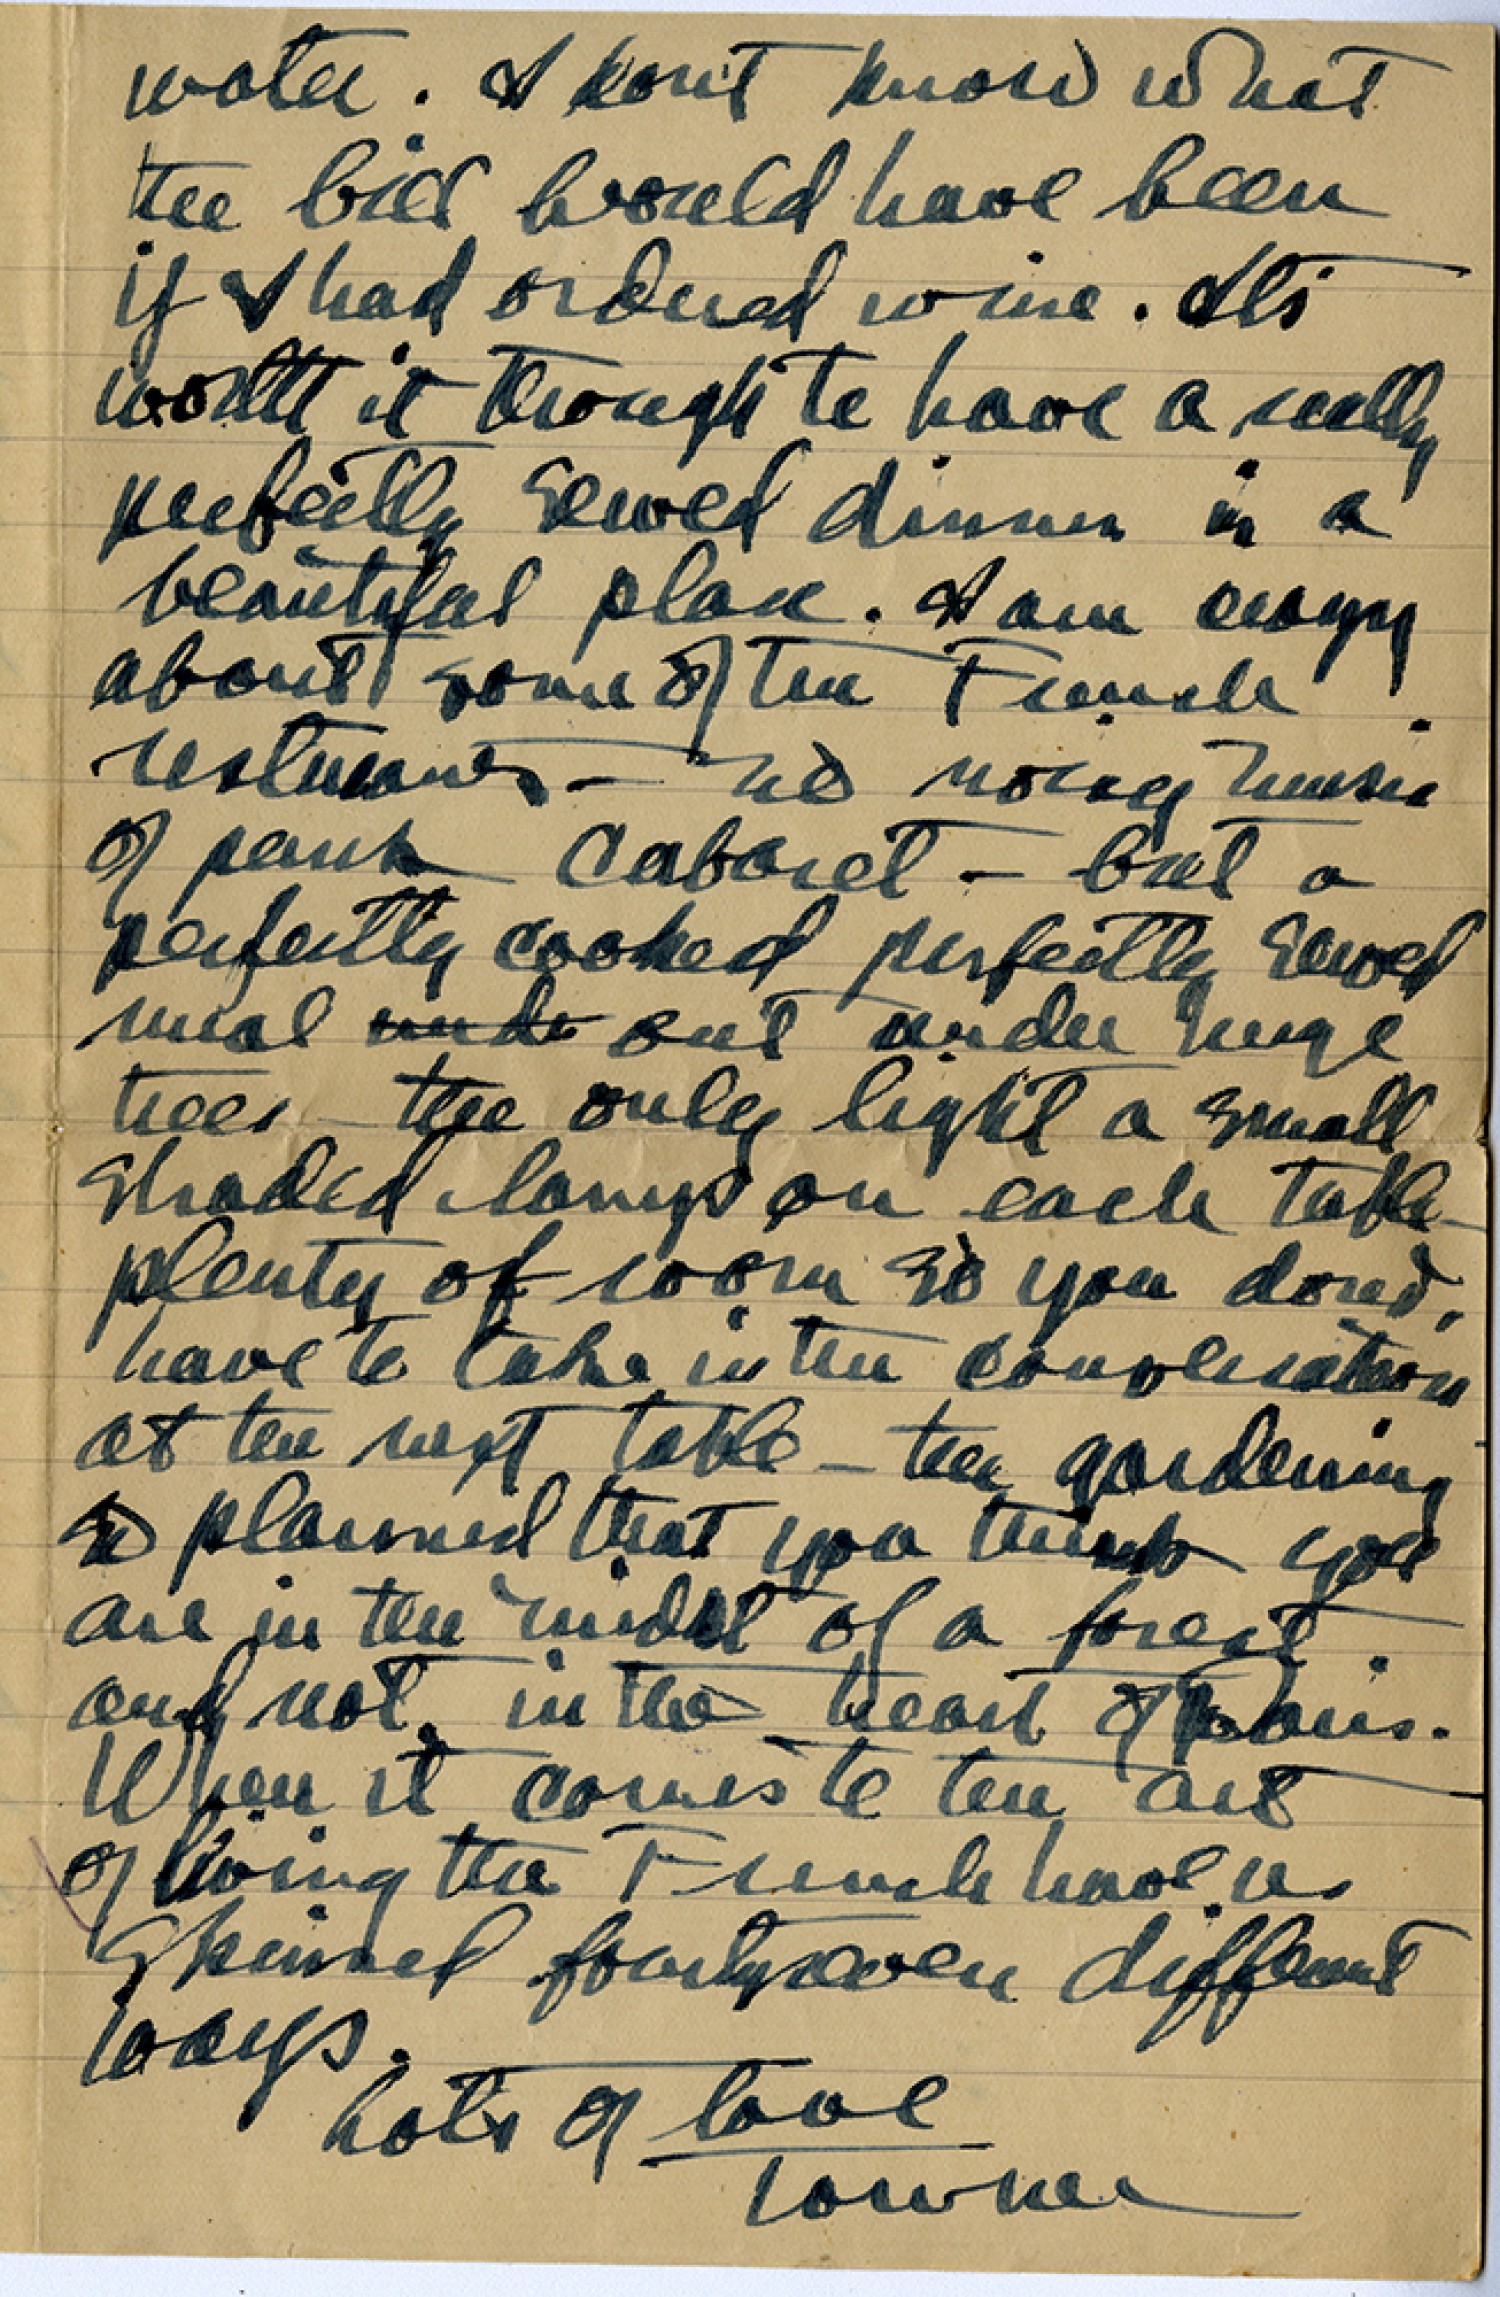 water. I don't know what
the bill would have been
if I had ordered wine. It's
worth it though to have a really
perfectly served dinner in a
beautiful place. I am crazy
about some of the French
resturants - no noisy music
of punk cabaret - but a
perfectly cooked perfectly served
meal unde out under huge
trees - the only light a small
shaded lamp on each table -
plenty of room so you don't
have to take in the conversation
at the next table - the gardening
so planned that you think you
are in the midst of a forest
and not in the heart of Paris.
When it comes to the art
of living the French have us
skinned fourty seven different
ways.
Lots of love
Towner